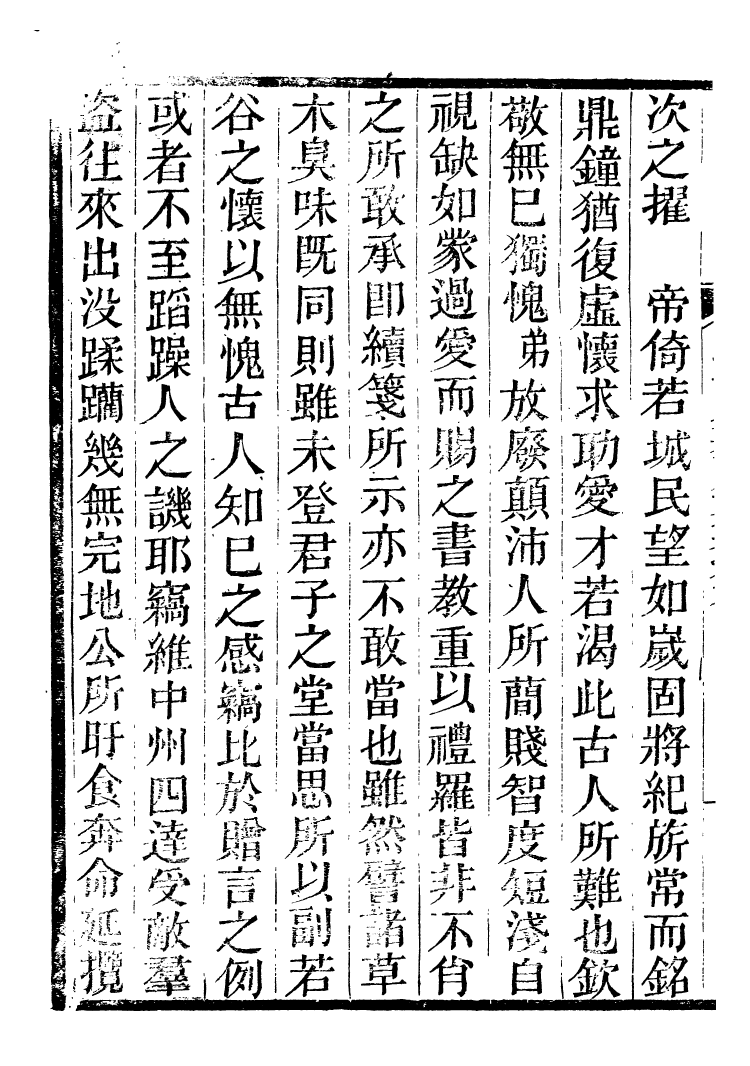 次之擢　帝倚若城民望如歲固將紀旂常而銘
鼎鐘猶復虛懷求助愛才若渴此古人所難也欽
敬無已獨愧弟放廢顛沛人所蕳賤智度短淺自
視缺如蒙過愛而賜之書教重以禮羅皆非不肖
之所敢承即續箋所示亦不敢當也雖然譬諸草
木臭味既同則雖未登君子之堂當思所以副若
谷之懷以無愧古人知巳之感竊比於贈言之例
或者不至蹈躁人之譏耶竊維中州四達受敵羣
盜往來出没蹂躪幾無完地公所旰食奔命延攬